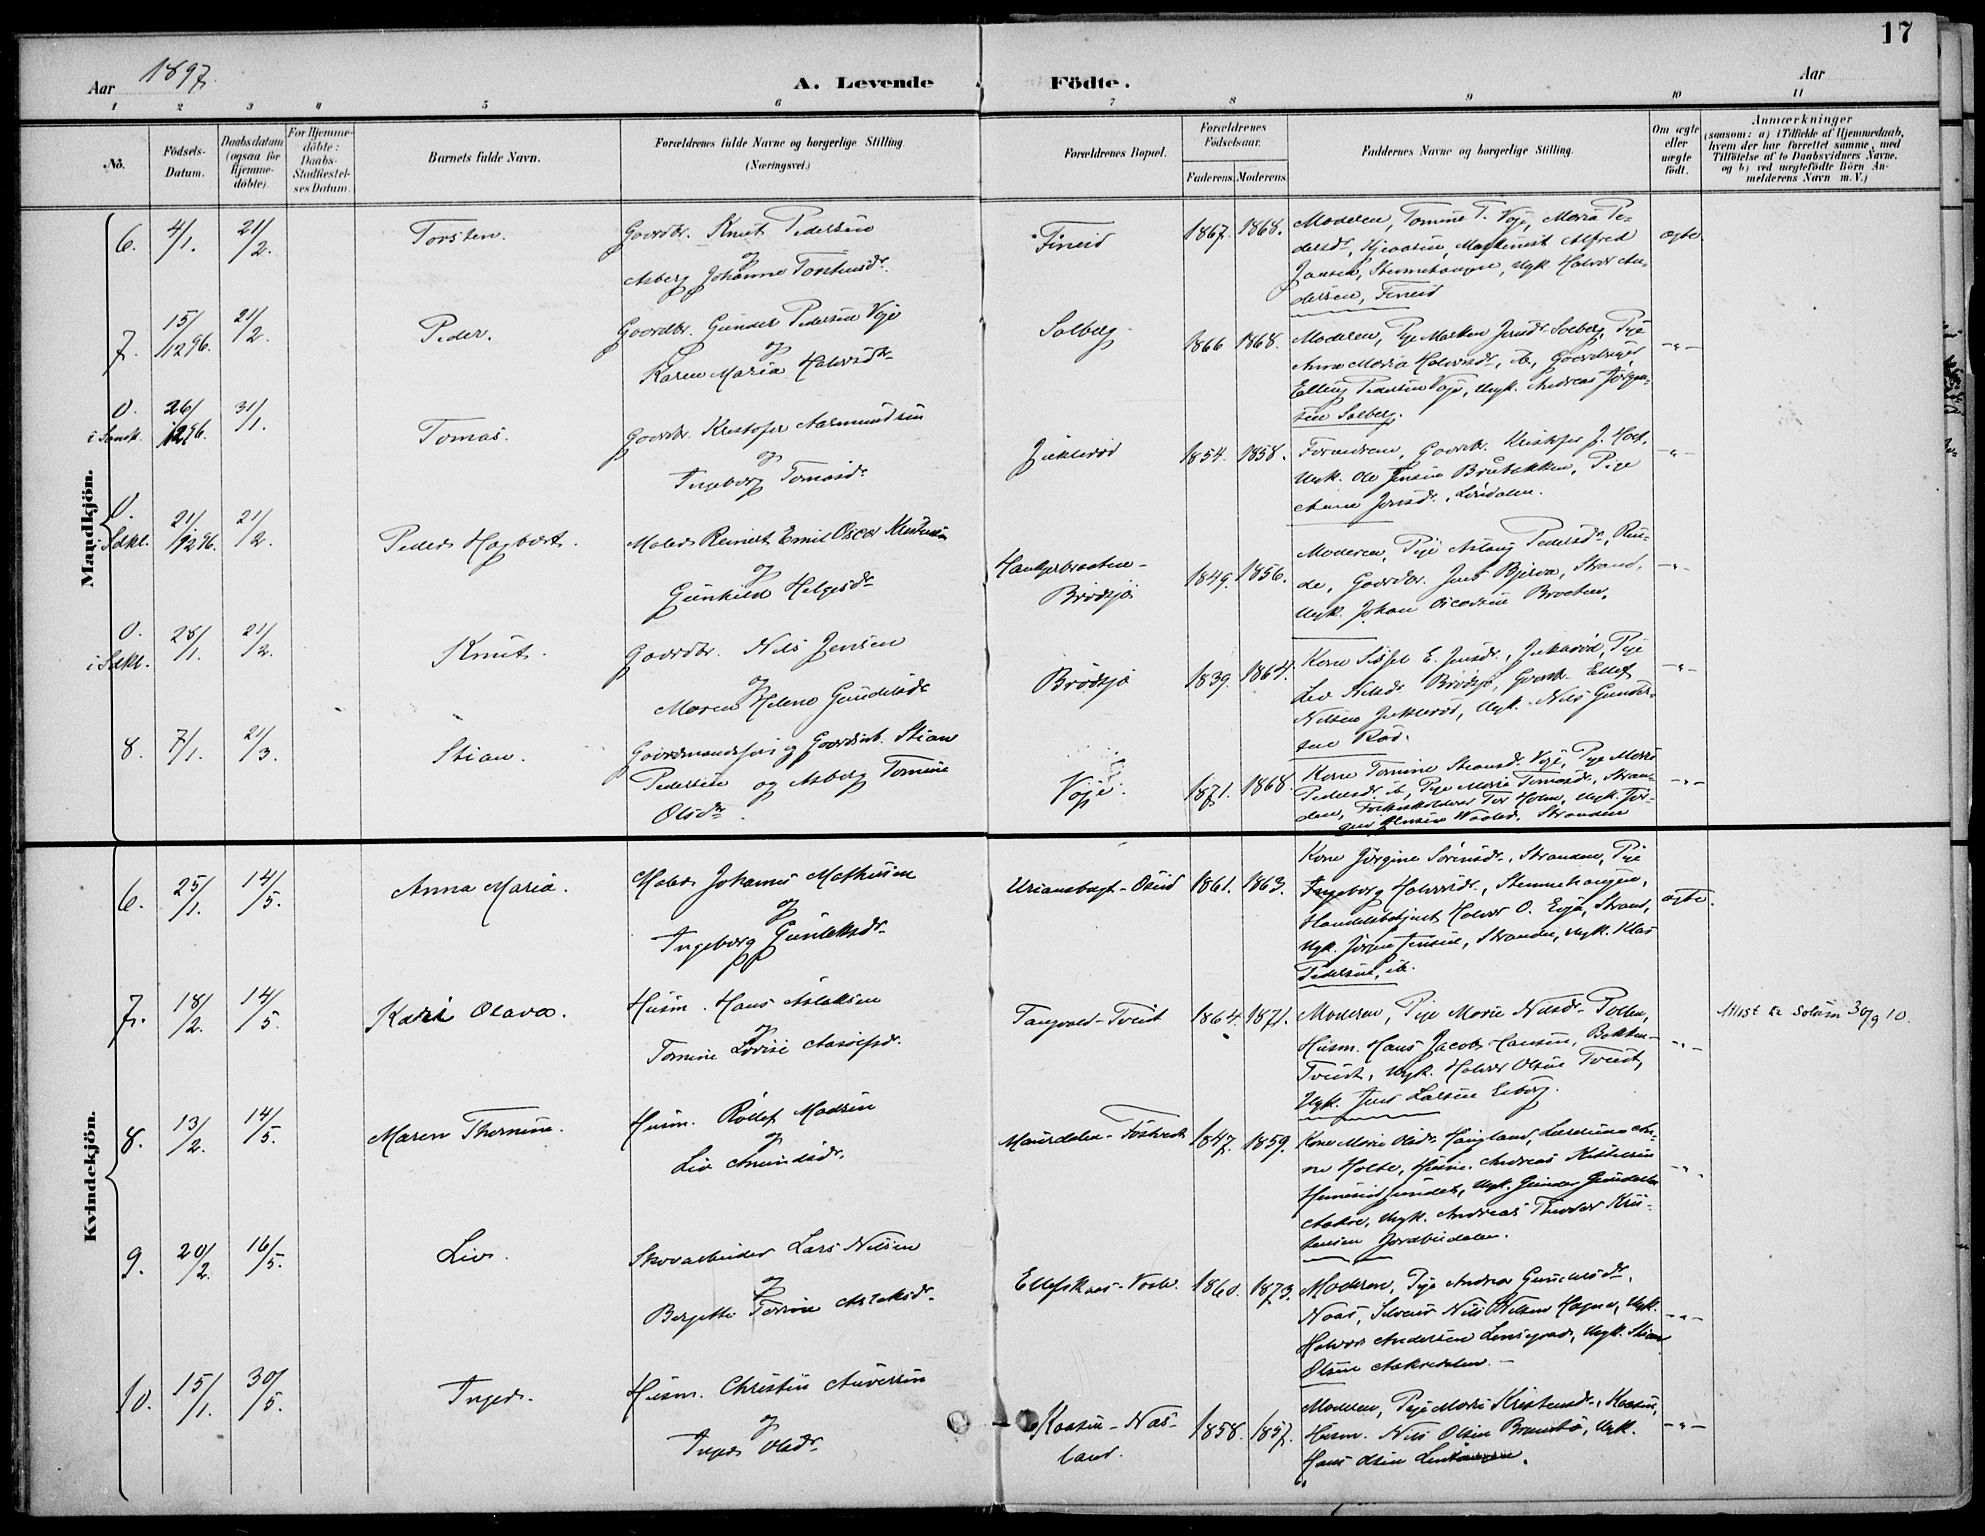 17
Aar 1897.
A. Levende Födte.
Aar
1 2 3 4 5 6 7 8 9 10 11
No.
Födsels-Datum.
Daabsdatum (ogsaa for Hjemme-döbte).
For Hjemme-döbte: Daabs-Stadfæstel-ses Datum.
Barnets fulde Navn.
Forældrenes fulde Navne og borgerlige Stilling (Næringsvei.)
Forældrenes Bopæl.
Forældrenes Födselsaar.
Faderens. Moderens.
Faddernes Navne og borgerlige Stilling.
Om ægte eller uægte födt.
Anmærkninger
(saasom: a) i Tilfælde af Hjemmedaab,
hvem der har forrettet samme, med
Tilföielse af to Daabsvidners Navne,
og b) ved uægtefödte Börn An-
melderens Navn m. V.)
Mandkjön.
6. 4/1. 21/2. Torsten. Gaardbr. Knut Pedersen
og
Asberg Johanne Torstensdr.
Fineid 1867. 1868.
Moderen, Tomine T. Voje, Maria Pe-
dersdr, Maskinist Alfred
Jansen, Stennehaugen, Ugk. Halvor An-
dersen, Fineid
ægte.
7. 15/12 96. 21/2. Peder. Gaardbr. Gunder Pedersen Voje
og
Karen Maria Halvorsdr
Solberg 1866 1868.
Moderen, Pige Maren Jensdr Solberg, Pige
Anne Maria Halvorsdr, ib, Gaardbruger
Elling Pedersen Voje, Ugk. Andreas Jörgen-
sen Solberg.
-"-
0. i Sandk. 26/12 96. 31/1. Tomas. Gaardbr. Kristofer Aasmundsen
og
Ingeborg Tomasdr
1854. 1858.
Gaardbr. Kristofer J. Holt,
Ugk. Ole Jensen Brubakken, Pige
Anne Jensdr.
-"-
0. i Sdkl. 21/12 96. 21/2. Peder Hagbart. Maler Reinert Emil Oscar Kristensen
og
Gunhild Helgesdr
Brödsjö 1849. 1856.
Moderen, Pige Aslaug Pedersdr, Run-
de, Gaardbr. Jens Bjerva, Strand,
Ugk. Johan Oscarsen Braaten.
-"-
0. i Sdkl. 28/1. 21/2. Knut. Gaardbr. Nils Jensen
og
Maren Helene Gundersdr
Brödsjö 1839. 1864.
Kone Sissel E. Jensdr, Pige
Liv Brödsjö, Gaardbr. Ellef
Nilsen Ugk. Nils Gunder-
sen
-"-
8. 7/1. 21/3. Stian. Gaardmandssön og Gaardarb. Stian
Pedersen og Asberg Tomine
Olsdr.
Voje. 1871. 1868.
Kone Tomine Stiansdr Voje, Pige Maria
Pedersdr ib, Pige Maria Tomasdr, Stran-
den, Tor Holm, Ugk. Tor-
Stranden
-"-
Kvindekjön.
6. 25/1. 14/5. Anna Maria. Maler Johannes Mathisen
og
Ingeborg Gunleksdr
Uriansbugt - Oseid 1861. 1863.
Kone Jörgine Sörensdr, Stranden, Pige
Ingeborg Halvorsdr, Stennehaugen,
Handelsbetjent Halvor O. Strand,
Ugk. Jörgen Jensen, Stranden, Ugk. Klas
Pedersen, ib.
ægte.
7. 18/2. 14/5. Kari Olava. Husm. Hans Aslaksen
og
Tomine Lovise
Tangvald - Tveit 1864. 1871.
Moderen, Pige Marie Nilsdr Pollen,
Husm. Hans Jacob Hansen, Bakken-
Tveit, Ugk. Halvor Olsen Tveit,
Ugk. Jens Larsen Eeborg.
-"-
Attest til Solum 30/9 10.
8. 13/2. 14/5. Maren Thomine. Husm. Rollef Madsen
og
Liv Amundsdr.
1847. 1859.
Kone Maria Olsdr Haugland, Lærerinne An-
ne Holte, Husm. Andreas Kittelsen
Ugk. Gunder Gundersen
Aakre, Ugk. Andreas Theodor Kris-
tensen
-"-
9. 20/2. 16/5. Liv. Skovarbeider Lars Nilsen
og
Bergette Torine Aslaksdr.
1860. 1873.
Moderen, Pige Andrea Gundersdr.
Naas, Nils Nilsen Ugk.
Halvor Andersen Ugk. Stian
Olsen Aakredalen.
-"-
10. 15/1. 30/5. Inger. Husm. Christen Anversen
og
Inger Olsdr
Kaasen - Nas-
land. 1858. 1857.
Moderen, Pige Maria Kristensdr, Kaasen,
Husm. Nils Olsen Ugk.
Hans Olsen
-"-